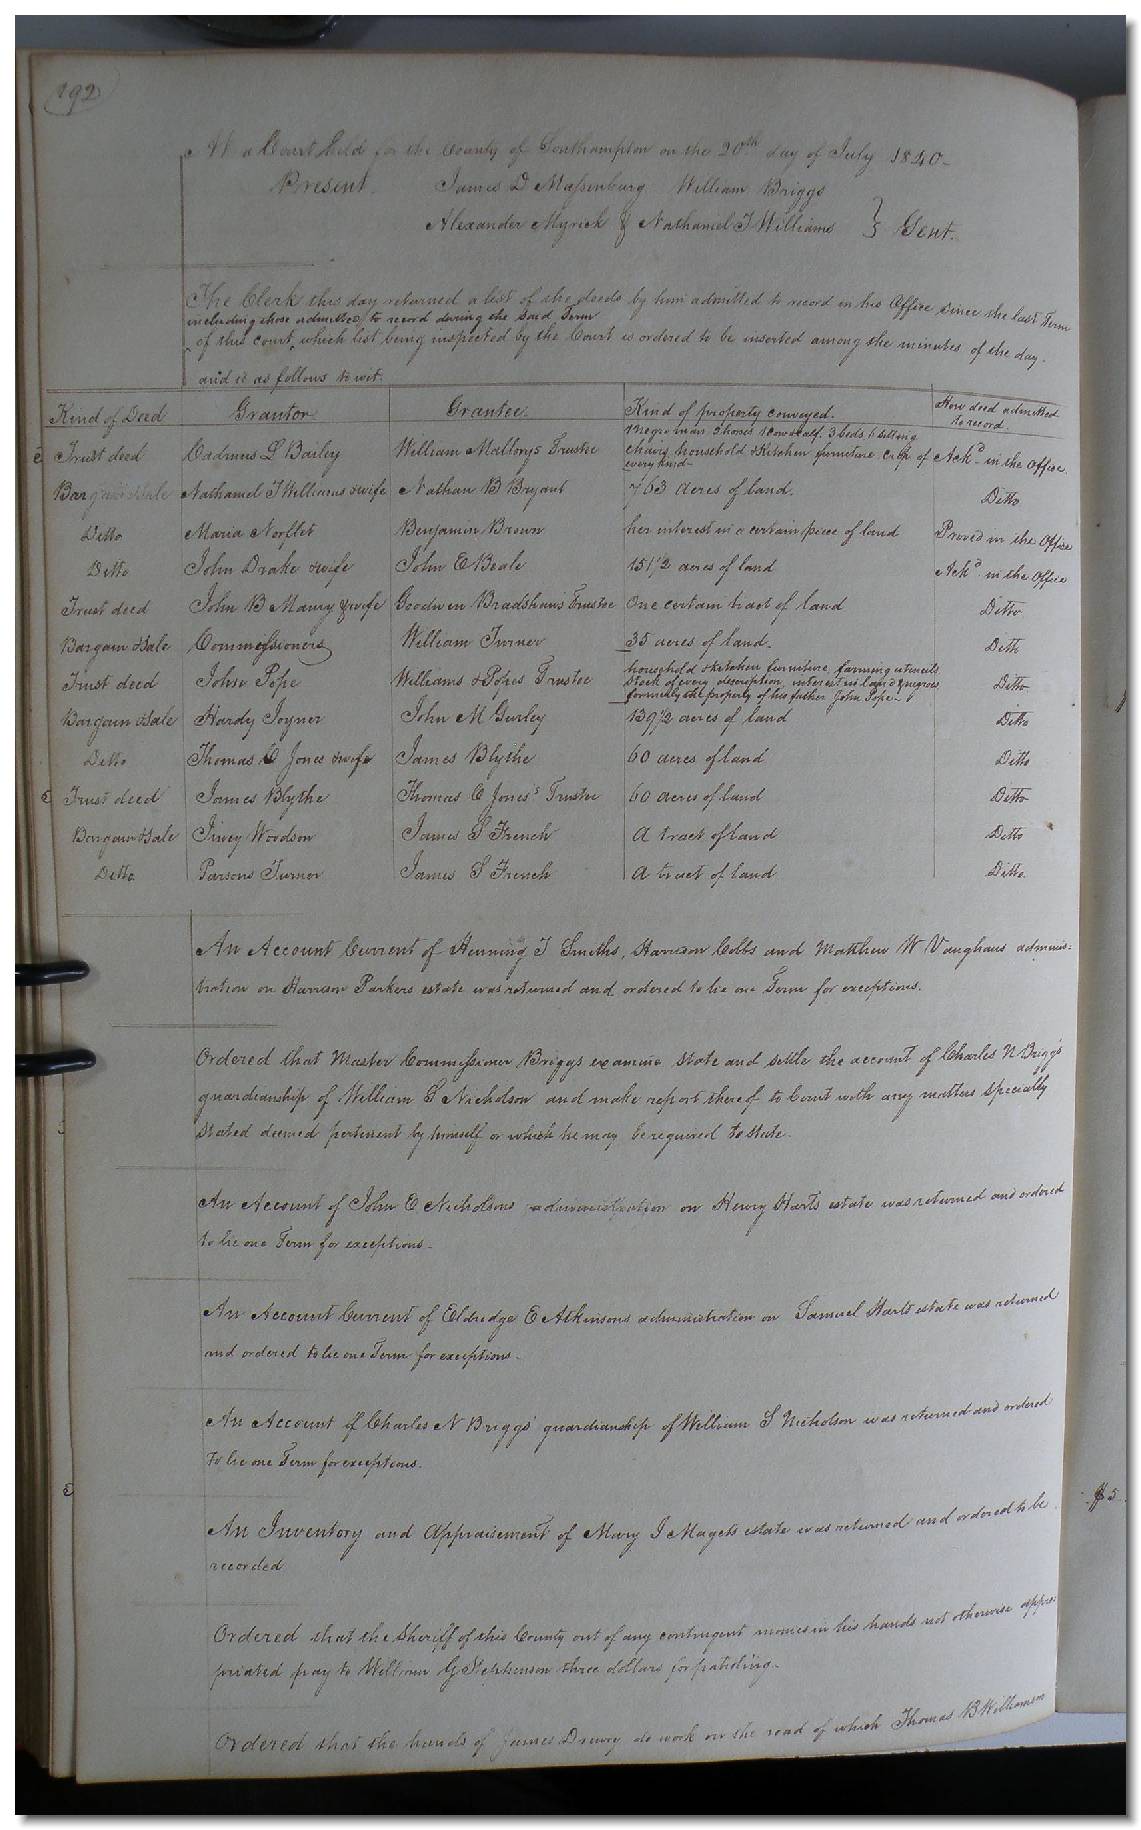 192
At a Court held for the County of Southampton on the 20th day of July 1840-
Present. James D Massenburg William Briggs
Alexander Myrick & Nathaniel T Williams } Gent.
The Clerk this day returned a list of the deeds by him admitted to record in his Office since the last Term
including those admitted to record during the said Term
of this court, which list being inspected by the Court is ordered to be inserted among the minutes of the day.
and is as follows to wit.
Kind of Deed Grantor Grantee Kind of property conveyed. How deed admitted to record.
Trust deed Cadmus L Bailey William Mallorys Trustee 1 negro man 2 horses 1 cow & calf. 3 beds 6 sitting
chairs household & kitchen furniture crop of Ackd in the Office
every kind-
Bargain & Sale Nathaniel T Williams & wife Nathan B Bryant 763 acres of land. Ditto
Ditto Maria Norflet Benjamin Brown her interest in a certain piece of land Proved in the Office
Ditto John Drake & wife John E Beale 151 1/2 acres of land Ackd in the Office
Trust deed John B Maury & wife Goodwin Bradshaw's Trustee One certain tract of land Ditto
Bargain & Sale Commissioners William Turner 35 acres of land. Ditto
Trust deed Pope Williams & Popes Trustee household & kitchen furniture farming utensils
stock of every description interest in land & negroes Ditto
formerly the property of his father John Pope-
Bargain & Sale Hardy Joyner John M Gurley 139 1/2 acres of land Ditto
Ditto Thomas C Jones & wife James Blythe 60 acres of land Ditto
Trust deed James Blythe Thomas C Jones's Trustee 60 acres of land Ditto
Bargain & Sale Woodson James S French A tract of land Ditto
Ditto Parsons Turner James S French A tract of land Ditto
An Account Current of Henning T Smiths, Harrison Cobbs and Matthew W Vaughans adminis-
tration on Harrison Parkers estate was returned and ordered to lie one Term for exceptions.
Ordered that Master Commissioner Briggs examine state and settle the account of Charles N Brigg's
guardianship of William S Nicholson and make report thereof to Court with any matters specially
stated deemed pertinent by himself or which he may be required to state.
An Account of John E Nicholsons administration on Henry Harts estate was returned and ordered
to lie one Term for exceptions-
An Account Current of Eldredge E Atkinsons administration on Samuel Harts estate was returned
and ordered to lie one Term for exceptions-
An Account of Charles N Briggs' guardianship of William S Nicholson was returned and ordered
to lie one Term for exceptions.
An Inventory and Appraisement of Mary J Magets estate was returned and ordered to be
recorded
Ordered that the Sheriff of this County out of any contingent monies in his hands not otherwise appro-
priated pay to William G Stephenson three dollars for patrolling-
Ordered that the hands of James Drewry do work on the road of which Thomas B Williamson
$5